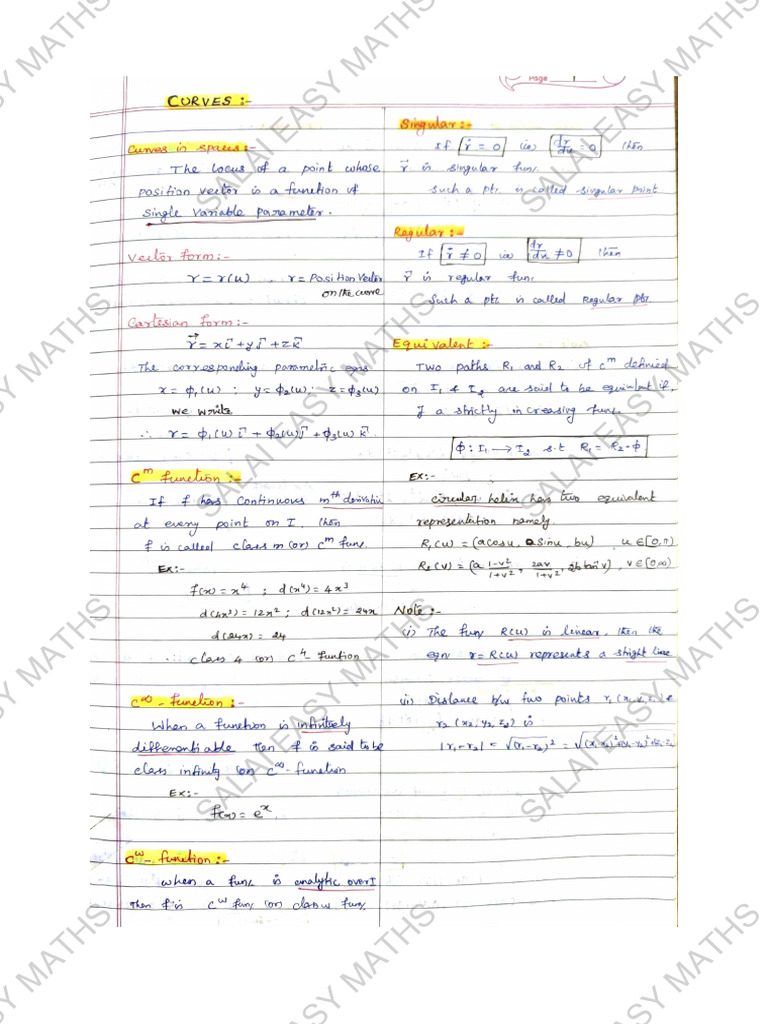 Page 1
CURVES :-
Curves in spaces :-
The locus of a point whose
position vector is a function of
single variable parameter.
Vector form :-
r = r(u) . r = Position Vector
on the curve
Cartesian form :-
r⃗ = xi⃗ + yj⃗ + zk⃗
The corresponding parametric eqns
x = ϕ₁(u) ; y = ϕ₂(u) ; z = ϕ₃(u)
we write
∴ r = ϕ₁(u) i⃗ + ϕ₂(u) j⃗ + ϕ₃(u) k⃗.
Cᵐ function :-
If f has continuous mᵗʰ derivative
at every point on I, then
f is called class m (or) Cᵐ func.
Ex :-
f(x) = x⁴ ; d(x⁴) = 4x³
d(4x³) = 12x² ; d(12x²) = 24x
d(24x) = 24
∴ class 4 (or) C⁴- funtion
C^∞ - function :-
When a function is infinitely
differentiable then f is said to be
class infinity (or) C^∞- function
Ex :-
f(x) = eˣ.
C^ω - function :-
when a func is analytic over I
then f is C^ω func (or) class ω func.
Singular :-
If ṙ = 0 (ie) dr/du = 0 then
r⃗ is singular func.
such a pt. is called singular point
Regular :-
If ṙ ≠ 0 (ie) dr/du ≠ 0 then
r⃗ is regular func.
Such a pt. is called Regular pt.
Equivalent :-
Two paths R₁ and R₂ of Cᵐ defined
on I₁ & I₂ are said to be equivalent if
∃ a strictly increasing func.
ϕ : I₁ → I₂ s.t R₁ = R₂∘ϕ
Ex :-
circular helix has two equivalent
representation namely.
R₁(u) = (a cosu, a sinu, bu) , u ∈ [0,π)
R₂(v) = (a 1-v²/1+v², 2av/1+v², 2b tan⁻¹v) , v ∈ [0,∞)
Note :-
(i) The func R(u) is linear, then the
eqn r = R(u) represents a stright line
(ii) Distance b/w two points r₁(x₁,y₁,z₁) &
r₂(x₂,y₂,z₂) is
|r₁-r₂| = √(r₁-r₂)² = √(x₁-x₂)²+(y₁-y₂)²+(z₁-z₂)
SALAI EASY MATHS